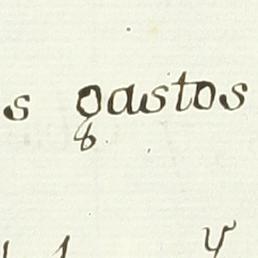 s gastos
y